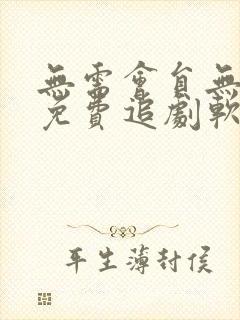 無需會員無
免費追劇軟
平生薄封侯